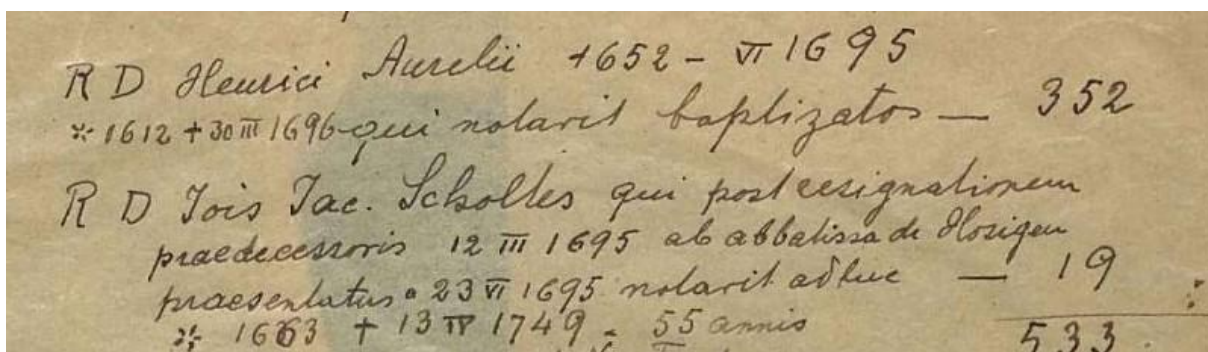 R D Henrici Aurelii +652 - VI 1695
* 1612 + 30 III 1696 qui notavit baptizatos — 352
R D Jois Jac. Scholtes qui post resignationem
praedecessoris 12 III 1695 ab abbatissa de Hosigen
praesentatus 23 VI 1695 notavit adhuc — 19
* 1663 + 13 IV 1749 - 55 annis
533